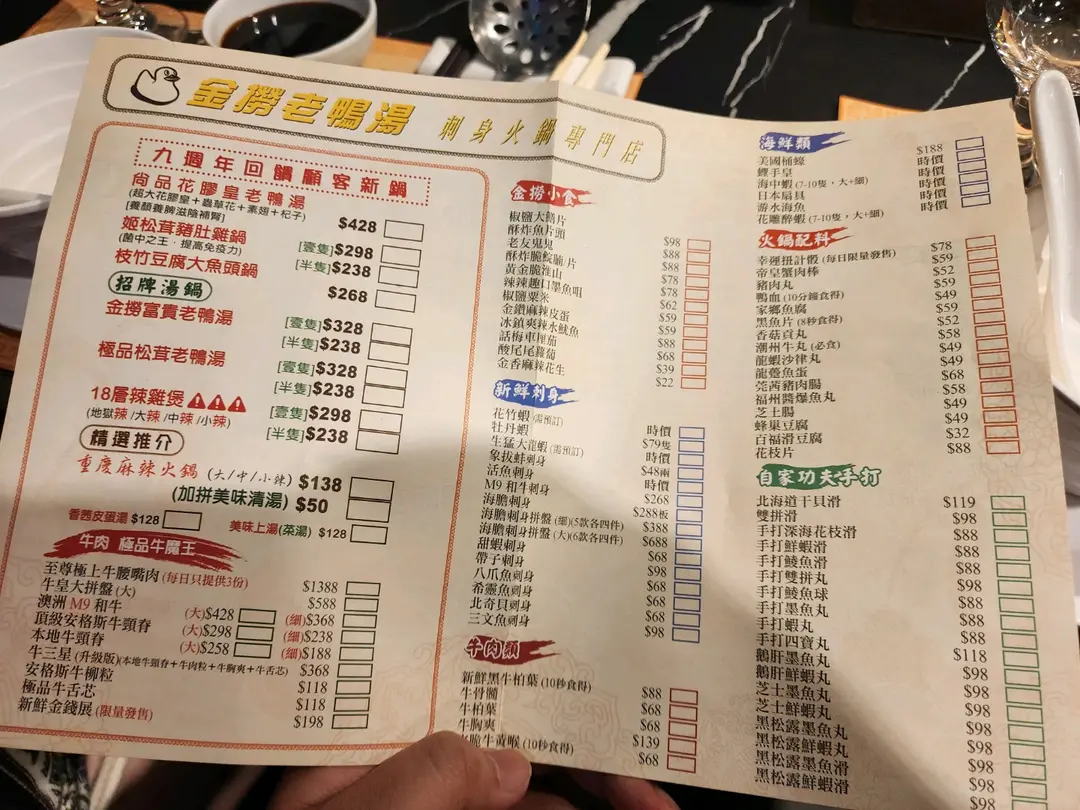 金撈老鴨湯 刺身火鍋專門店
九週年回饋顧客新鍋
尚品花膠皇老鴨湯
(超大花膠皇+蟲草花+素翅+杞子)
[養顏養脾滋陰補腎] $428
姬松茸豬肚雞鍋 [壹隻]$298
(菌中之王·提高免疫力) [半隻]$238
枝竹豆腐大魚頭鍋 $268
招牌湯鍋
金撈富貴老鴨湯 [壹隻]$328
[半隻]$238
極品松茸老鴨湯 [壹隻]$328
[半隻]$238
18層辣雞煲 [壹隻]$298
(地獄辣/大辣/中辣/小辣) [半隻]$238
精選推介
重慶麻辣火鍋 (大/中/小辣) $138
(加拼美味清湯) $50
香茜皮蛋湯 $128 美味上湯(菜湯) $128
牛肉 極品牛魔王
至尊極上牛腰嘴肉(每日只提供3份) $1388
牛皇大拼盤(大) $588
澳洲M9和牛 (大)$428 (細)$368
頂級安格斯牛頸脊 (大)$298 (細)$238
本地牛頸脊 (大)$258 (細)$188
牛三星(升級版)(本地牛頸脊+牛肉粒+牛胸爽+牛舌芯) $368
安格斯牛柳粒 $118
極品牛舌芯 $118
新鮮金錢展(限量發售) $198
金撈小食
椒鹽大鱔片 $98
酥炸魚片頭 $88
老友鬼鬼 $88
酥炸脆鯇腩片 $78
黃金脆淮山 $78
辣辣趣口墨魚咀 $62
椒鹽粟米 $59
金鑽麻辣皮蛋 $59
冰鎮爽辣水魷魚 $88
話梅車厘茄 $68
酸尾尾蘿蔔 $39
金香麻辣花生 $22
新鮮刺身
花竹蝦(需預訂) 時價
牡丹蝦 $79隻
生猛大龍蝦(需預訂) 時價
象拔蚌刺身 $48兩
活魚刺身 時價
M9和牛刺身 $268
海膽刺身 $288板
海膽刺身拼盤(細)(5款各四件) $388
海膽刺身拼盤(大)(6款各四件) $688
甜蝦刺身 $68
帶子刺身 $98
八爪魚刺身 $68
希靈魚刺身 $68
北奇貝刺身 $68
三文魚刺身 $98
牛肉類
新鮮黑牛柏葉(10秒食得) $88
牛骨髓 $68
牛柏葉 $68
牛胸爽 $139
脆牛黃喉(10秒食得) $68
海鮮類
美國桶蠔 $188
鰹手皇 時價
海中蝦(7-10隻,大+細) 時價
日本扇貝 時價
游水海魚 時價
花雕醉蝦(7-10隻,大+細)
火鍋配料
幸運扭計骰(每日限量發售) $78
帝皇蟹肉棒 $59
豬肉丸 $52
鴨血(10分鐘食得) $59
家鄉魚腐 $49
黑魚片(8秒食得) $59
香菇貢丸 $52
潮州牛丸(必食) $58
龍蝦沙律丸 $49
龍躉魚蛋 $49
莞茜豬肉腸 $68
福州醬爆魚丸 $58
芝士腸 $49
蜂巢豆腐 $49
百福滑豆腐 $32
花枝片 $88
自家功夫手打
北海道干貝滑 $119
雙拼滑 $98
手打深海花枝滑 $88
手打鮮蝦滑 $88
手打鯪魚滑 $88
手打雙拼丸 $98
手打鯪魚球 $88
手打墨魚丸 $88
手打鮮蝦丸 $88
手打四寶丸 $118
鵝肝墨魚丸 $98
鵝肝鮮蝦丸 $98
芝士墨魚丸 $98
芝士鮮蝦丸 $98
黑松露墨魚丸 $98
黑松露鮮蝦丸 $98
黑松露墨魚滑 $98
黑松露鮮蝦滑 $98